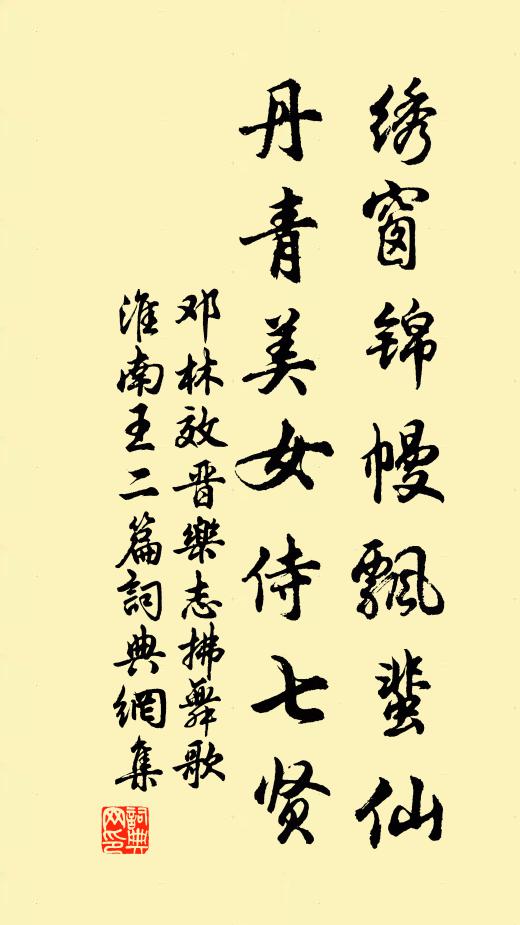 绣窗锦幔飘蜚仙
丹青美女侍七贤
邓林效晋樂志拂舞歌
淮南王二篇詞典網集
詞典
网印